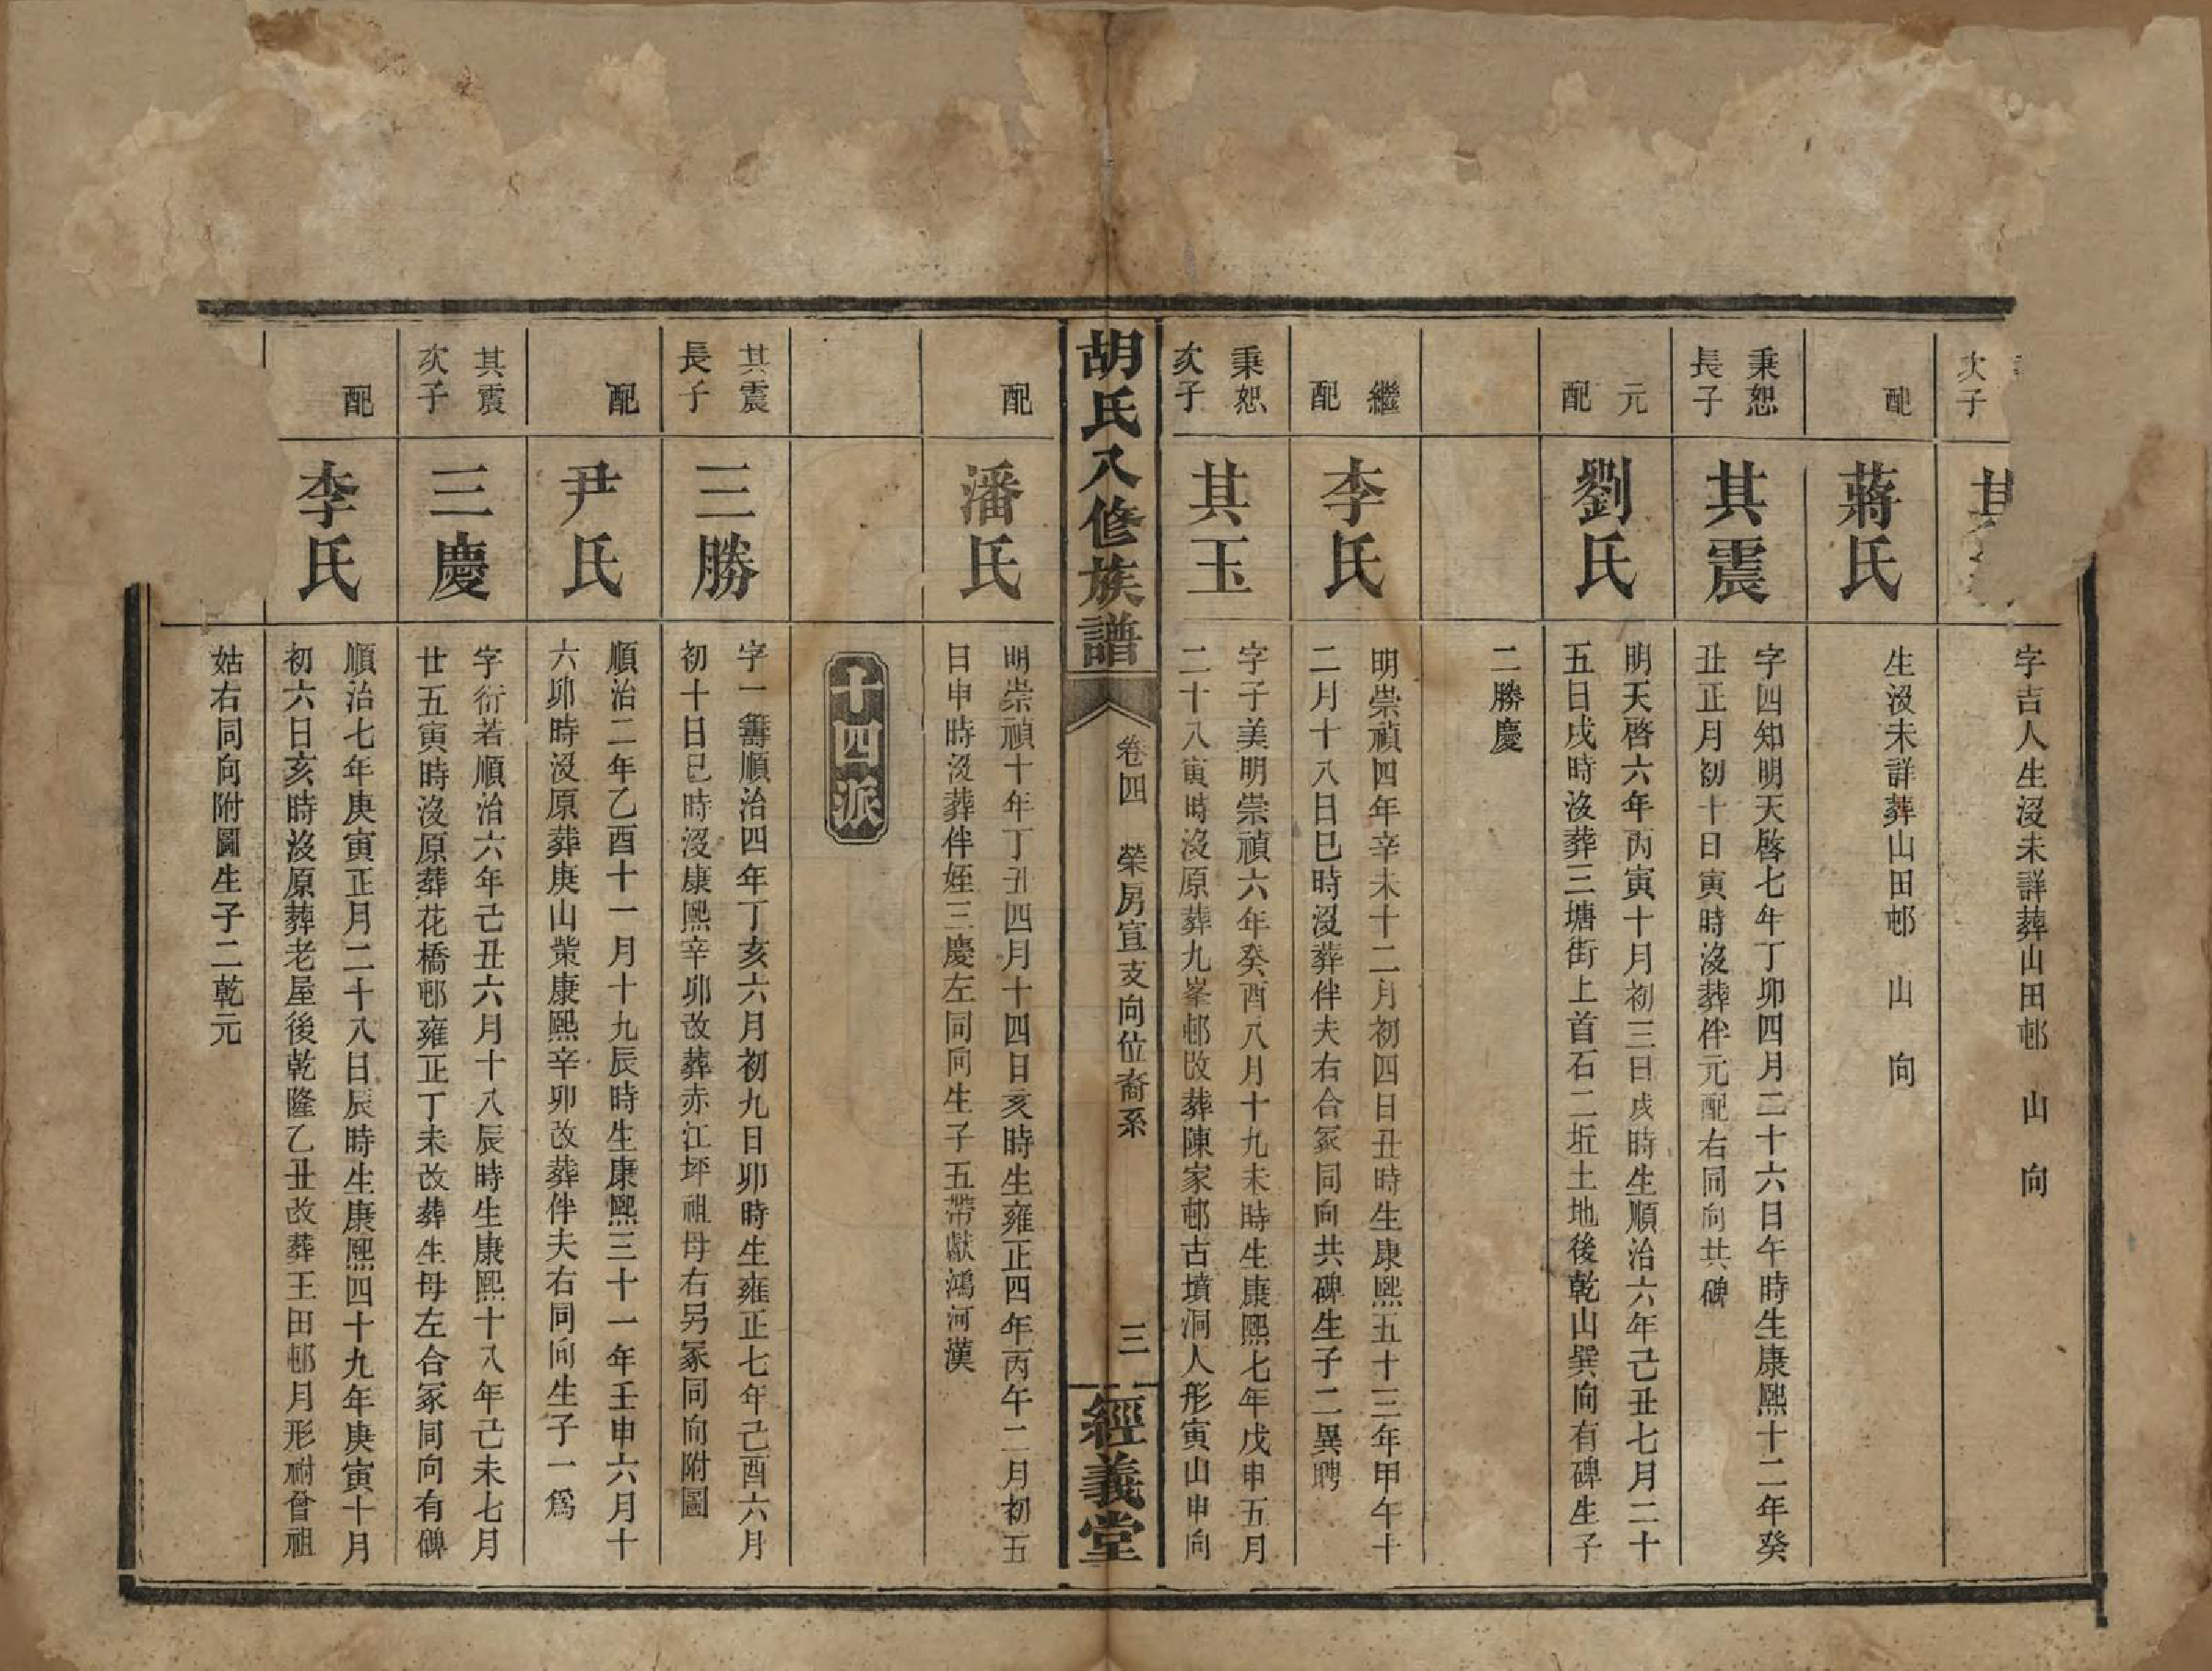 次子
其
字吉人生沒未詳葬山田邨 山 向
配
蔣氏
生沒未詳葬山田邨 山 向
秉恕
長子
其震
字四知明天啓七年丁卯四月二十六日午時生康熙十二年癸
丑正月初十日寅時沒葬伴元配右同向共碑
元
配
劉氏
明天啓六年丙寅十月初三日戌時生順治六年己丑七月二十
五日戌時沒葬三塘街上首石二坵土地後乾山巽向有碑生子
二勝慶
繼
配
李氏
明崇禎四年辛未十二月初四日丑時生康熙五十三年甲午十
二月十八日巳時沒葬伴夫右合冢同向共碑生子二異聘
秉恕
次子
其玉
字子美明崇禎六年癸酉八月十九未時生康熙七年戊申五月
二十八寅時沒原葬九峯邨改葬陳家邨古墳洞人形寅山申向
胡氏八修族譜
卷四 榮房宣支向位裔系
三
經義堂
配
潘氏
明崇禎十年丁丑四月十四日亥時生雍正四年丙午二月初五
日申時沒葬伴姪三慶左同向生子五帶獻鴻河漢
十四派
其震
長子
三勝
字一籌順治四年丁亥六月初九日卯時生雍正七年己酉六月
初十日巳時沒康熙辛卯改葬赤江坪祖母右另冢同向附圖
配
尹氏
順治二年乙酉十一月十九辰時生康熙三十一年壬申六月十
六卯時沒原葬庚山業康熙辛卯改葬伴夫右同向生子一爲
其震
次子
三慶
字衍若順治六年己丑六月十八辰時生康熙十八年己未七月
廿五寅時沒原葬花橋邨雍正丁未改葬生母左合冢同向有碑
配
李氏
順治七年庚寅正月二十八日辰時生康熙四十九年庚寅十月
初六日亥時沒原葬老屋後乾隆乙丑改葬王田邨月形祔曾祖
姑右同向附圖生子二乾元